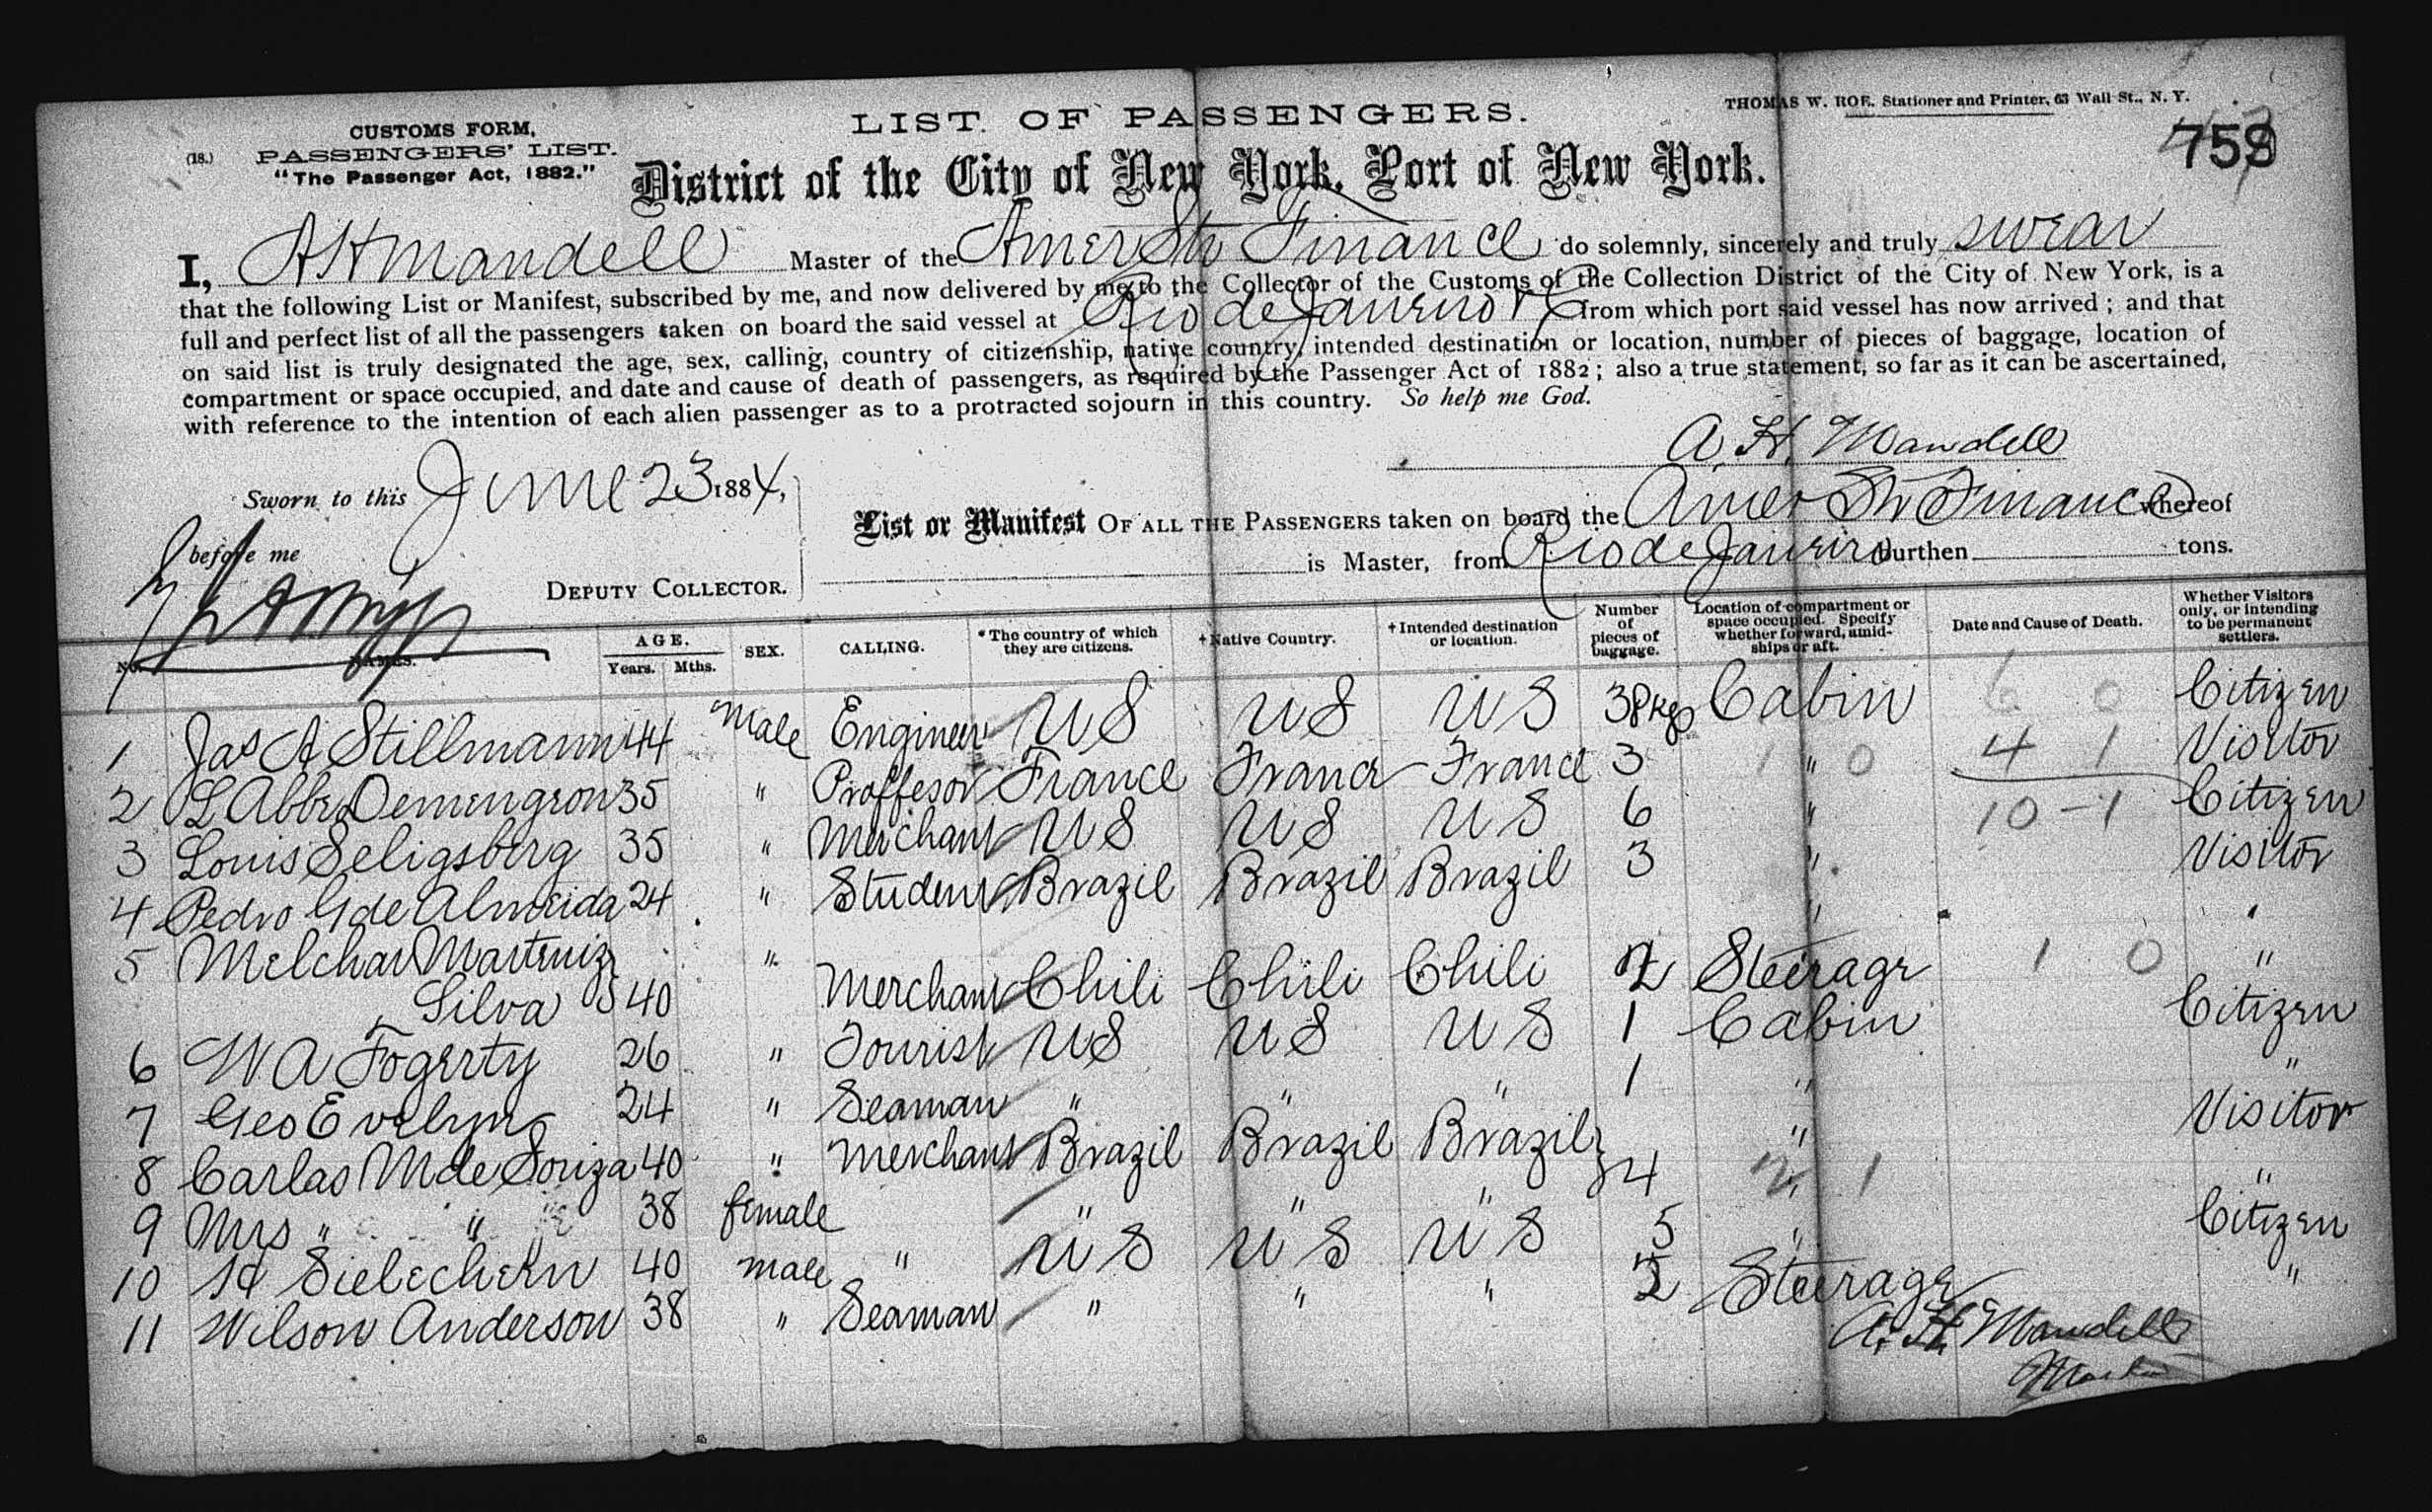 THOMAS W. ROE. Stationer and Printer, 63 Wall St., N. Y.
LIST OF PASSENGERS.
(18.) CUSTOMS FORM,
PASSENGERS' LIST.
"The Passenger Act, 1882."
District of the City of New York, Port of New York.
I, A H Mandell Master of the Amer Str Finance do solemnly, sincerely and truly swear
that the following List or Manifest, subscribed by me, and now delivered by me to the Collector of the Customs of the Collection District of the City of New York, is a
full and perfect list of all the passengers taken on board the said vessel at Rio de Janeiro from which port said vessel has now arrived; and that
on said list is truly designated the age, sex, calling, country of citizenship, native country, intended destination or location, number of pieces of baggage, location of
compartment or space occupied, and date and cause of death of passengers, as required by the Passenger Act of 1882; also a true statement, so far as it can be ascertained,
with reference to the intention of each alien passenger as to a protracted sojourn in this country. So help me God.
A. H. Mandell
Sworn to this June 23 1884,
before me
DEPUTY COLLECTOR.
List or Manifest OF ALL THE PASSENGERS taken on board the Amer Str Finance whereof
is Master, from Rio de Janeiro burthen tons.
No. NAMES. AGE. Years. Mths. SEX. CALLING. *The country of which they are citizens. †Native Country. †Intended destination or location. Number of pieces of baggage. Location of compartment or space occupied. Specify whether forward, amidships or aft. Date and Cause of Death. Whether Visitors only, or intending to be permanent settlers.
1 Jas A Stillmann 44 Male Engineer US US US 3 Pkgs Cabin 6 0 Citizen
2 L Abbe Demengeon 35 " Proffesor France France France 3 " 1 0 4 1 Visitor
3 Louis Seligsberg 35 " Merchant US US US 6 " 10 - 1 Citizen
4 Pedro G de Almeida 24 " Student Brazil Brazil Brazil 3 " Visitor
5 Melchar Marteniz " " "
Silva 40 Merchant Chili Chili Chili 2 Steerage 1 0 "
6 W A Fogerty 26 " Tourist US US US 1 Cabin Citizen
7 Geo Evelyn 24 " Seaman " " " 1 " "
8 Carlas M de Souza 40 " Merchant Brazil Brazil Brazil } 4 " Visitor
9 Mrs " " 38 female " " " " 2 1 "
10 H Sielechern 40 male " US US US 5 " Citizen
11 Wilson Anderson 38 " Seaman " " " 2 Steerage "
A. H. Mandell
Master